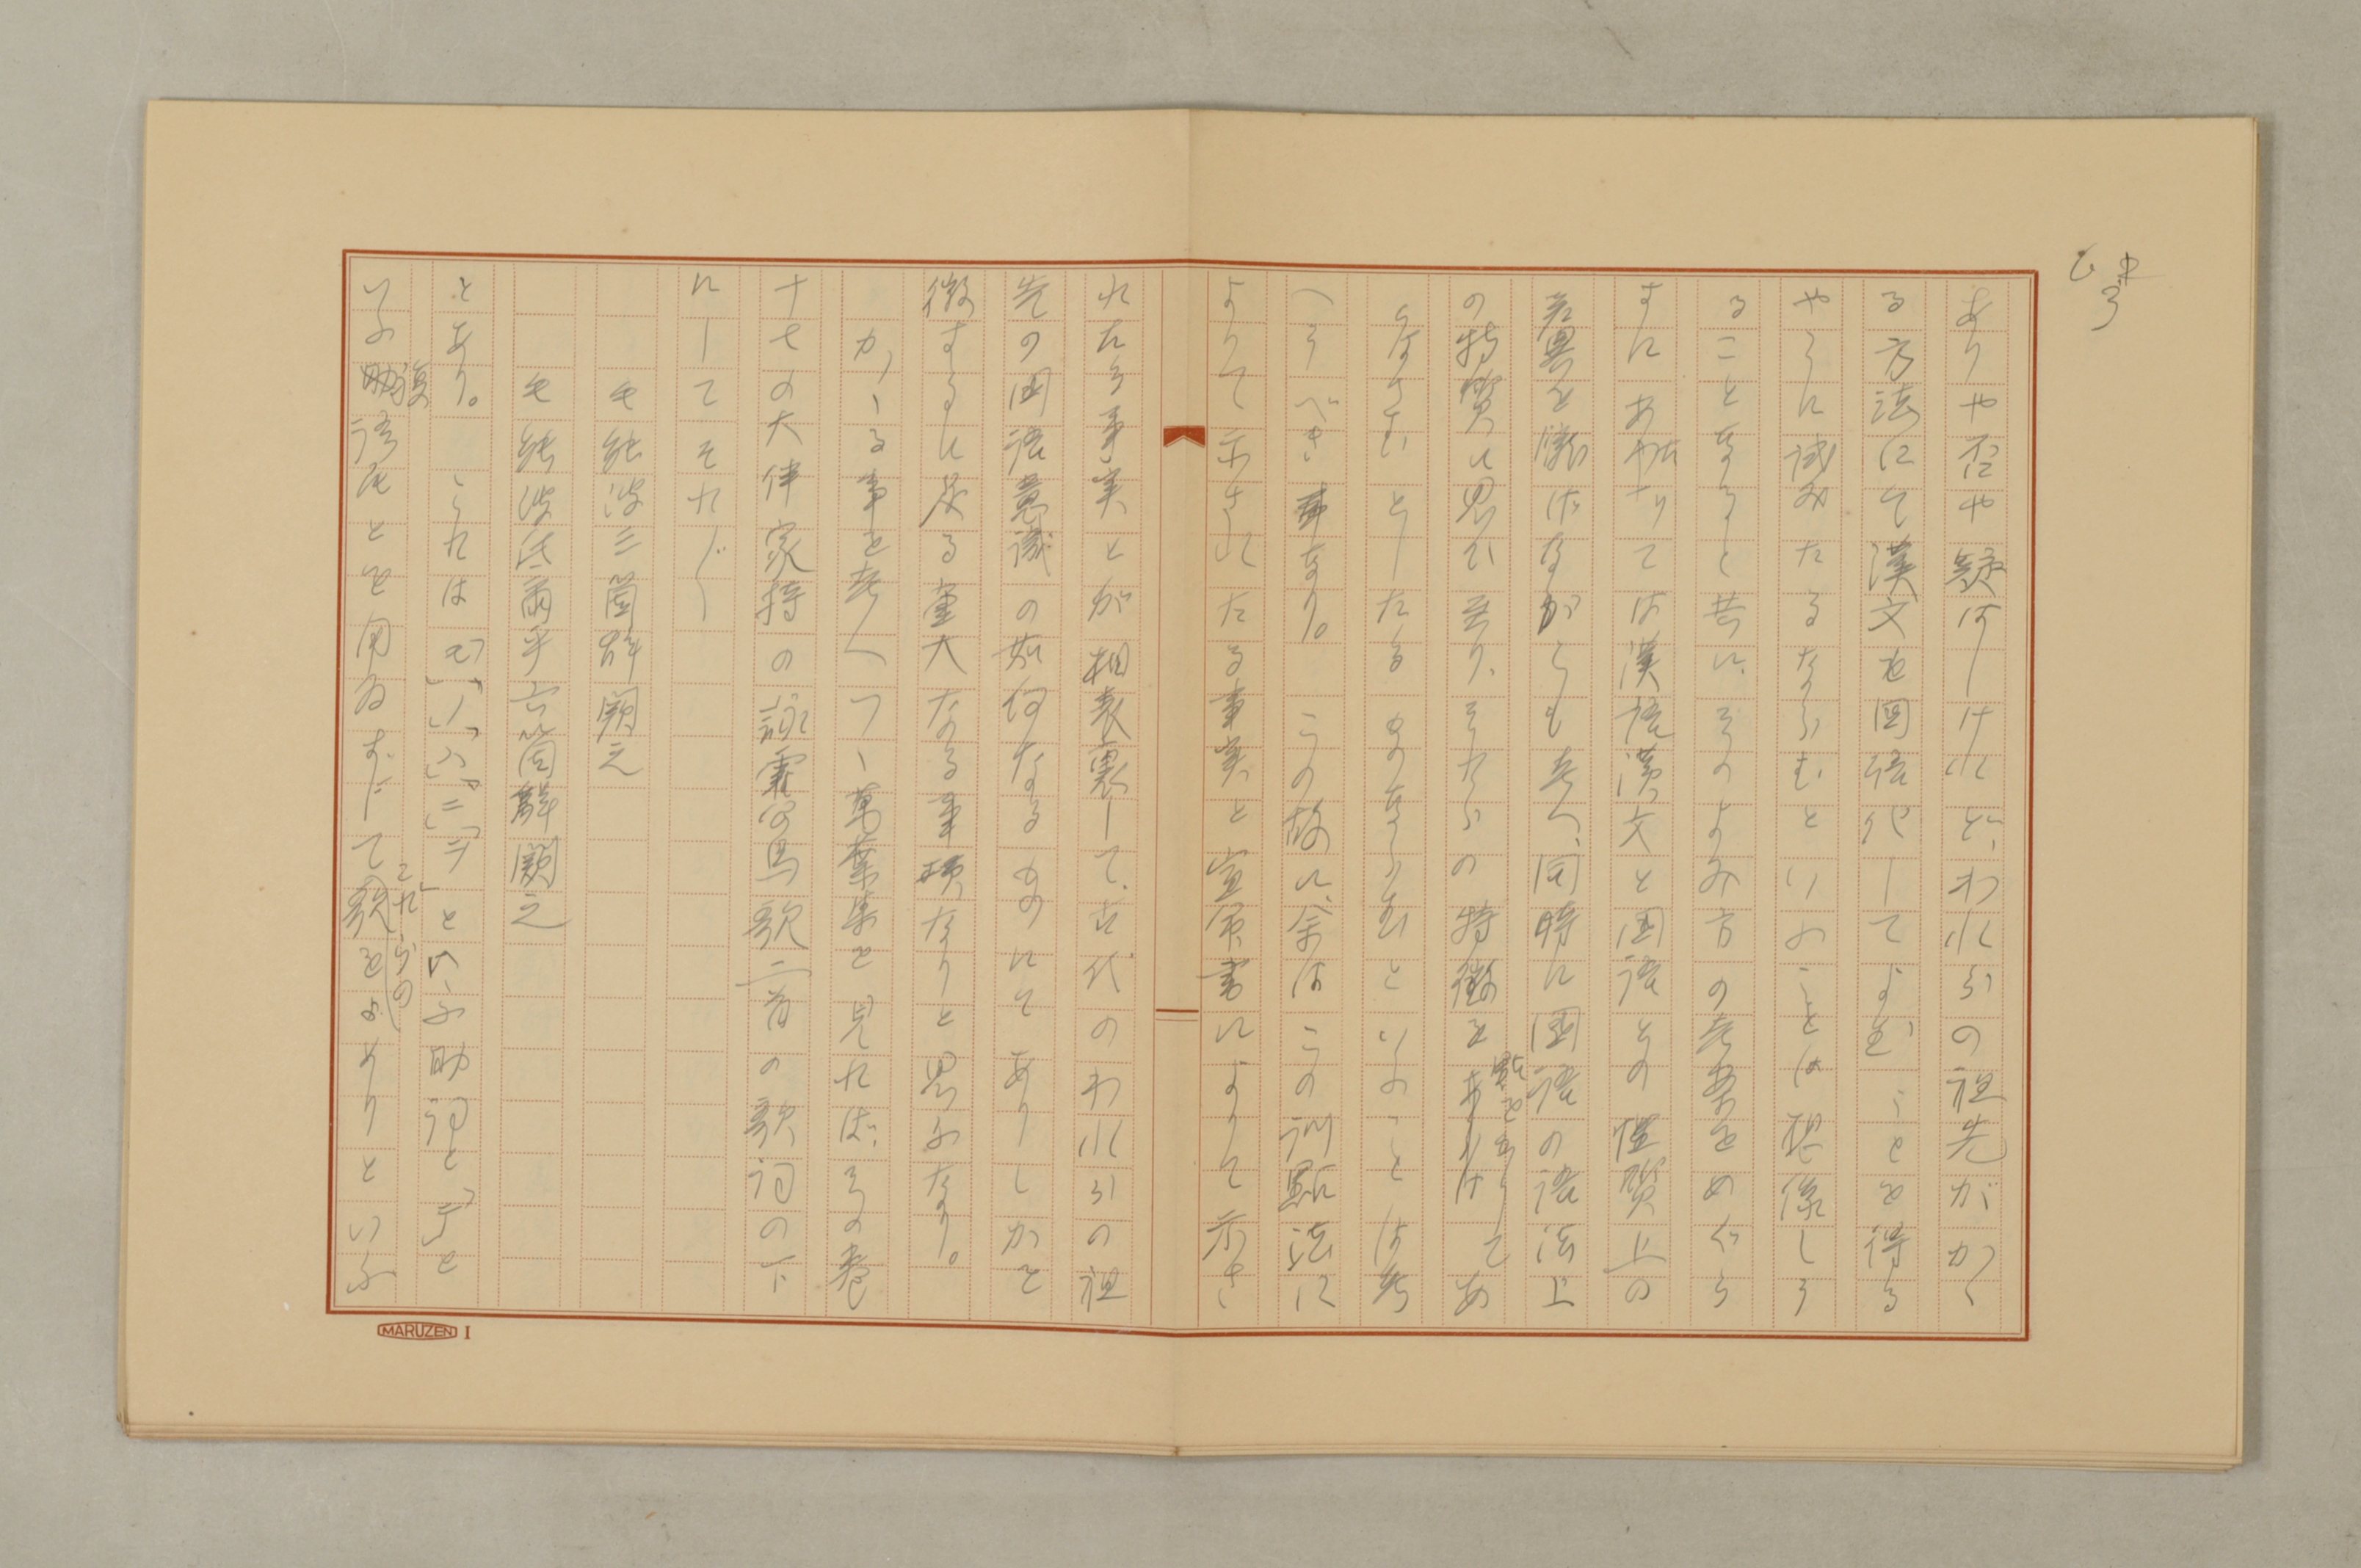 ありや否や疑はしけれど、われらの祖先がかく
る方法にて漢文を国語化してよむことを得る
やうに試みたるならむといふことは想像しう
ることなると共に、そのよみ方の考案をめぐら
すにあたりては漢語漢文と国語との性質上の
差異を勿論ながらも考へ、同時に国語の語法上
の特質に思ひ至り、それらの特徴をあらはしてあ
らはさむとしたるものならむといふことは考
へうべき事なり。この故に、余はこの訓點法に
よりて示されたる事実と宣命書によりて示さ
れたる事実とが相表裏して、古代のわれらの祖
先の国語意識の如何なるものにてありしかを
徴するに足る重大なる事項なりと思ふなり。
かゝる事を考へつゝ萬葉集を見れば、その巻
十七の大伴家持の詠霍公鳥歌二首の歌詞の下
にしてそれ／″＼
毛能波三箇辞闕之
毛能波氐爾乎六箇辞闕之
とあり。これは「モ」「ノ」「ハ」「ニ」「ヲ」といふ助詞と「テ」と
いふ複語尾とを用ゐずして歌をよめりといふ
これらの
MARUZEN I